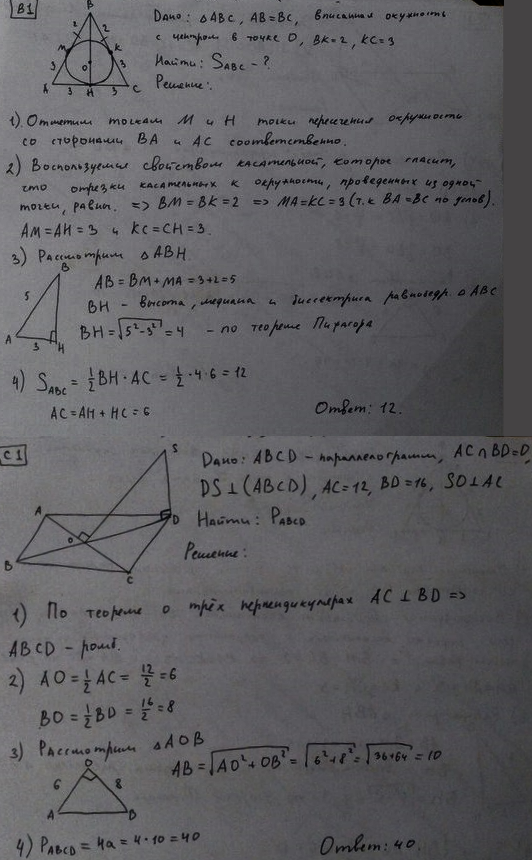 B1
Дано: △ABC, AB=BC, вписанная окужность
с центром в точке O, BK=2, KC=3
Найти: S_ABC - ?
Решение:
B
2 2
M K
3 O 3
A 3 H 3 C
1) Отметим точками M и H точки пересечения окружности
со сторонами BA и AC соответственно.
2) Воспользуемся свойством касательной, которое гласит,
что отрезки касательных к окружности, проведенных из одной
точки, равны. => BM=BK=2 => MA=KC=3 (т.к BA=BC по услов).
AM=AH=3 и KC=CH=3.
3) Рассмотрим △ABH.
B
5
A 3 H
AB=BM+MA=3+2=5
BH - высота, медиана и биссектриса равнобедр. △ABC
BH=√(5²-3²)=4 - по теореме Пифагора
4) S_ABC = 1/2 BH·AC = 1/2·4·6=12
AC=AH+HC=6
Ответ: 12.
C1
Дано: ABCD - параллелограмм, AC∩BD=O,
DS⊥(ABCD), AC=12, BD=16, SO⊥AC
Найти: P_ABCD
Решение:
S
A D
O
B C
1) По теореме о трёх перпендикулярах AC⊥BD =>
ABCD - ромб.
2) AO=1/2 AC=12/2=6
BO=1/2 BD=16/2=8
3) Рассмотрим △AOB
AB=√(AO²+OB²)=√(6²+8²)=√(36+64)=10
O
6 8
A B
4) P_ABCD=4a=4·10=40
Ответ: 40.